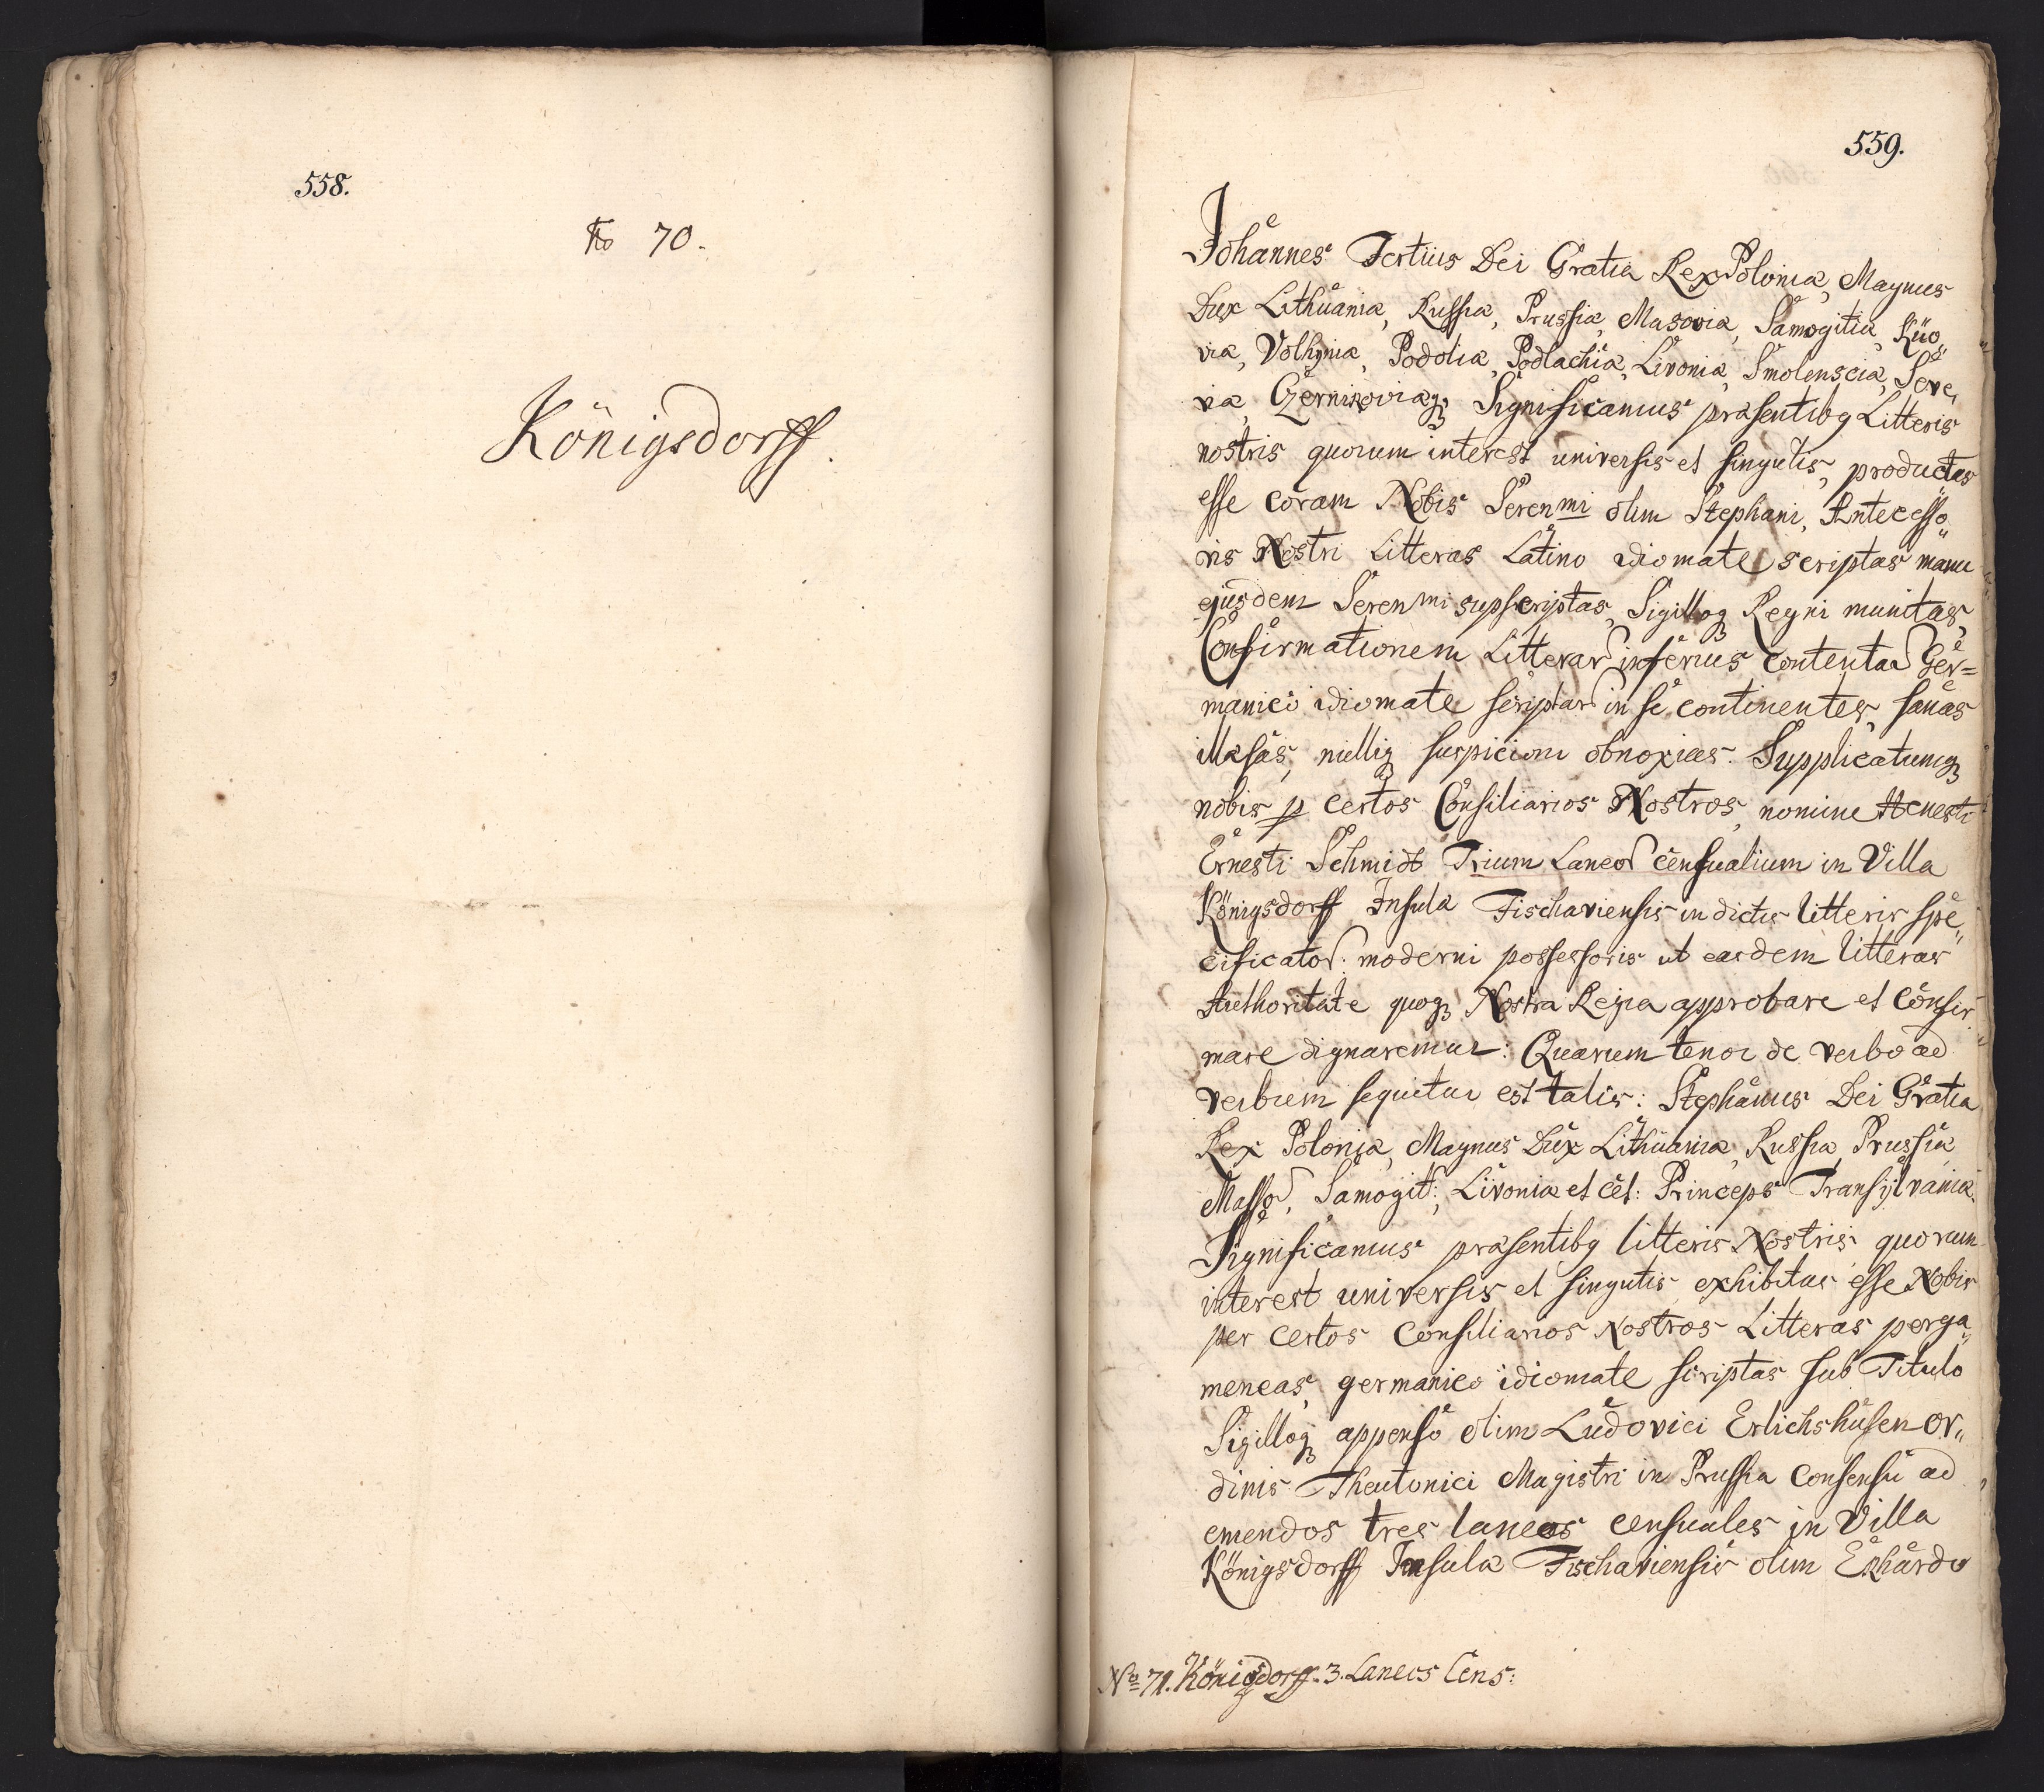 558.
No 70.
Königsdorff.
559.
Johannes Tertius Dei Gratia Rex Poloniæ, Magnus
Dux Lithuaniæ, Russiæ, Prussiæ, Masoviæ, Samogitiæ, Kÿo„
viæ, Volhyniæ, Podoliæ, Podlachiæ, Livoniæ, Smolensciæ, Seve„
riæ, Czernikoviæq; Significamus præsentibq Litteris
nostris quorum interest universis et singulis, productas
esse coram Nobis Seren mi olim Stephani, Antecesso„
ris Nostri Litteras Latino idiomate scriptas manu
ejusdem Seren mi supscriptas, Sigilloq Regni munitas,
Confirmationem Litterar inferius contentar Ger=
manico idiomate scriptar in se continentes, sanas
illæsas, nulliq suspicioni obnoxias. Supplicatumq
nobis p certos Consiliarios Nostros, nomine Honesti
Ernesti Schmidt Trium Laneor censualium in Villa
Königsdorff Insulæ Fischaviensis in dictis litteris spe„
cificator: moderni possessoris ut easdem litteras
Authoritate quoq Nostra Regia approbare et confir„
mare dignaremur: Quarum tenor de verbo ad
verbum sequitur est talis: Stephanus Dei Gratia
Rex Poloniæ, Magnus Dux Lithuaniæ, Russiæ, Prussiæ
Masso, Samogit:, Livoniæ et cet: Princeps Transÿlvaniæ.
Significamus præsentibq litteris Nostris, quorum
interest universis et singulis exhibitas esse Nobis
per certos Consiliarios Nostros Litteras perga„
meneas, germanico idiomate scriptas sub Titulo
Sigilloq appenso olim Ludovici Erlichshusen or„
dinis Theutonici Magistri in Prussia consensu ad
emendos tres laneos censuales in Villa
Königsdorff Insulæ Fischaviensis olim Ekhardo
No 71. Königsdorff. 3. Laneos Cens: